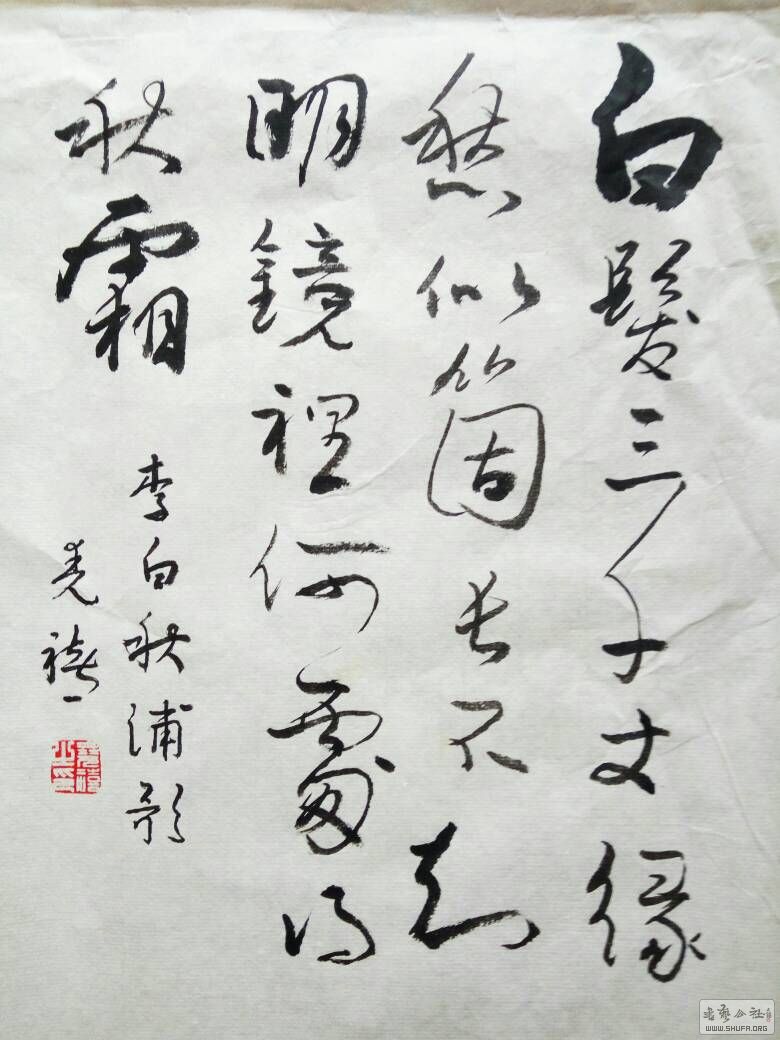 白髮三千丈緣
愁似箇長不知
明鏡裡何處得
秋霜
李白秋浦歌
堯禧
書藝公社
WWW.SHUFA.ORG